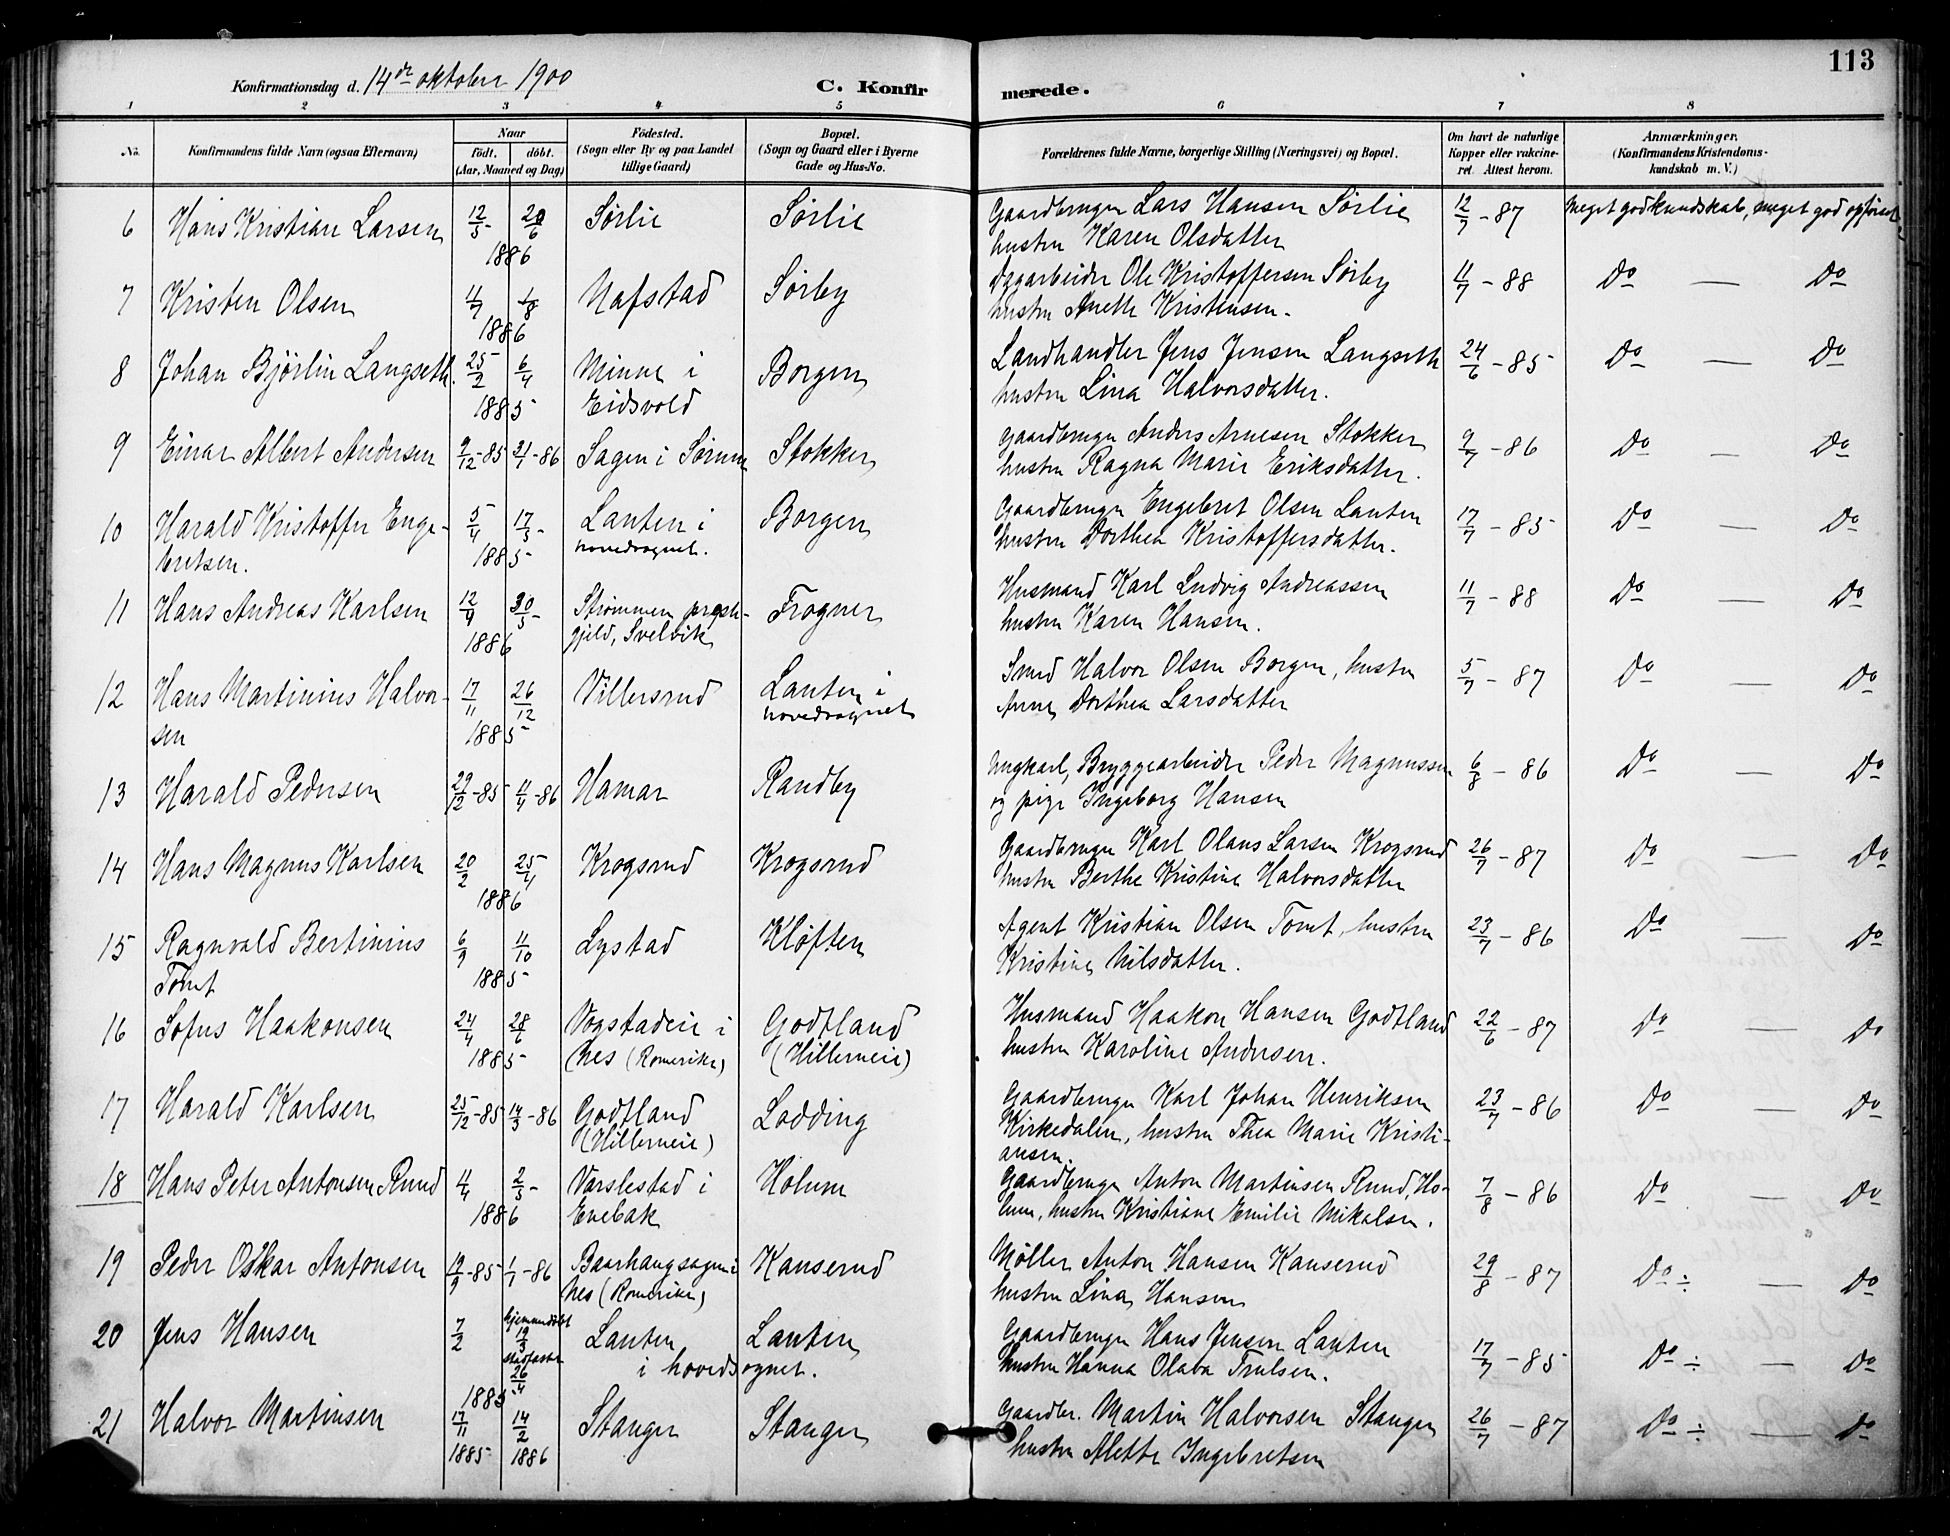 113
Konfirmationsdag d. 14de oktober 1900
C. Konfirmerede.
1 2 3 4 5 6 7 8
No. Konfirmandens fulde Navn (ogsaa Efternavn) Naar født. døbt. (Aar, Maaned og Dag) Fødested. (Sogn eller By og paa Landet tillige Gaard) Bopæl. (Sogn og Gaard eller i Byerne Gade og Hus-No. Forældrenes fulde Navne, borgerlige Stilling (Næringsvei) og Bopæl. Om havt de naturlige Kopper eller vakcineret. Attest herom. Anmærkninger. (Konfirmandens Kristendomskundskab m. V.)
6 Hans Kristian Larsen 12/5 20/6 Sørlie Sørlie Gaardbruger Lars Hansen Sørlie 12/7 - 87 Meget god kundskab, meget god opførsel
1886 hustru Karen Olsdatter
7 Kristen Olsen 11/7 1/8 Nafstad Sørby Ole Kristoffersen Sørby 11/7 - 88 Do — Do
1886 hustru Anette Kristensen.
8 Johan Bjørlin Langseth. 25/2 6/4 Minne i Borgen Landhandler Jens Jensen Langseth 24/6 - 85 Do — Do
1885 Eidsvold hustru Lina Halvorsdatter.
9 Einar Albert Andersen 9/12-85 31/1-86 Sagen i Sørum Stokker Gaardbruger Anders Arnesen Stokker 9/7 - 86 Do — Do
hustru Ragna Marie Eriksdatter.
10 Harald Kristoffer Enge- 5/4 17/5 Lauten i Borgen Gaardbruger Engebret Olsen Lauten 17/7 - 85 Do — Do
bretsen. 1885 hovedsognet. hustru Dorthea Kristoffersdatter.
11 Hans Andreas Karlsen 12/4 30/5 Strømmen præste- Frogner Husmand Karl Ludvig Andreassen 11/7 - 88 Do — Do
1886 gjeld, Svelvik hustru Karen Hansen.
12 Hans Martinius Halvor- 17/11 26/12 Villersrud Lauten i Smed Halvor Olsen Borgen, hustru 5/7 - 87 Do — Do
sen 1885 hovedsognet Anne Dorthea Larsdatter
13 Harald Pedersen 29/12-85 11/4-86 Hamar Randby Ungkarl, Bryggearbeider Peder Magnussen 6/8 - 86 Do — Do
og pige Ingeborg Hansen
14 Hans Magnus Karlsen 20/2 25/4 Krogsrud Krogsrud Gaardbruger Karl Olaus Larsen Krogsrud 26/7 - 87 Do — Do
1886 hustru Berthe Kristine Halvorsdatter
15 Ragnvald Bertinius 6/9 11/10 Lystad Kløften Agent Kristian Olsen Tomt, hustru 23/7 - 86 Do — Do
Tomt 1885 Kristine Nilsdatter.
16 Sofus Haakonsen 24/4 28/6 Vogstadeie i Godtland Husmand Haakon Hansen Godtland 22/6 - 87 Do — Do
1885 Nes (Romerike) (Hillerneie) hustru Karoline Andersen.
17 Harald Karlsen 25/12-85 14/3-86 Godtland Lodding Gaardbruger Karl Johan Henriksen 23/7 - 86 Do — Do
(Hillerneie) Kirkedalen, hustru Thea Marie Kristi-
ansen.
18 Hans Peter Antonsen Rund 4/4 2/5 Varslestad i Holum Gaardbruger Anton Martinsen Rund, Ho- 7/8 - 86 Do — Do
1886 Enebak lum, hustru Kristiane Emilie Mikalsen.
19 Peder Oskar Antonsen 19/9-85 1/1-86 Baarhaugsagen i Kanserud Møller Anton Hansen Kanserud 29/8 - 87 Do ÷ — Do
Nes (Romerike) hustru Lina Hansen
20 Jens Hansen 7/2 hjemmedøbt 19/3 Lauten Lauten Gaardbruger Hans Jensen Lauten 17/7 - 85 Do ÷ — Do
stadfæstet 26/4 i hovedsognet. hustru Hanna Olava Trulsen.
1885
21 Halvor Martinsen 17/11 14/2 Stanger Stanger Gaardbr. Martin Halvorsen Stanger 26/7 - 87 Do ÷ — Do
1885 1886 hustru Alette Ingebretsen